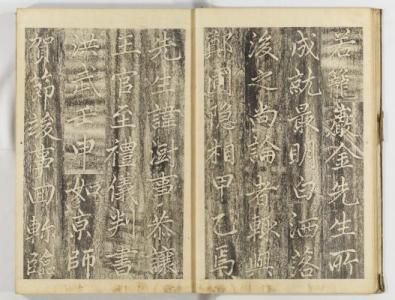 若籬巖金先生所
成就最明白洒落
後之尚論者輙與
鄭圃隐相甲乙焉
先生諱澍事恭讓
王官至禮儀判書
洪武壬申如京師
賀節竣事回斬臨